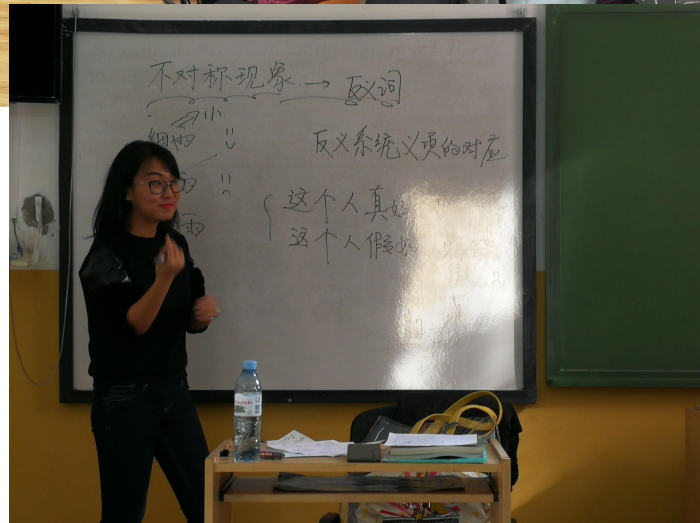 不对称现象 → 反义词
小
细雨
反义系统义项的对应
雨
这个人真好
这个人假好